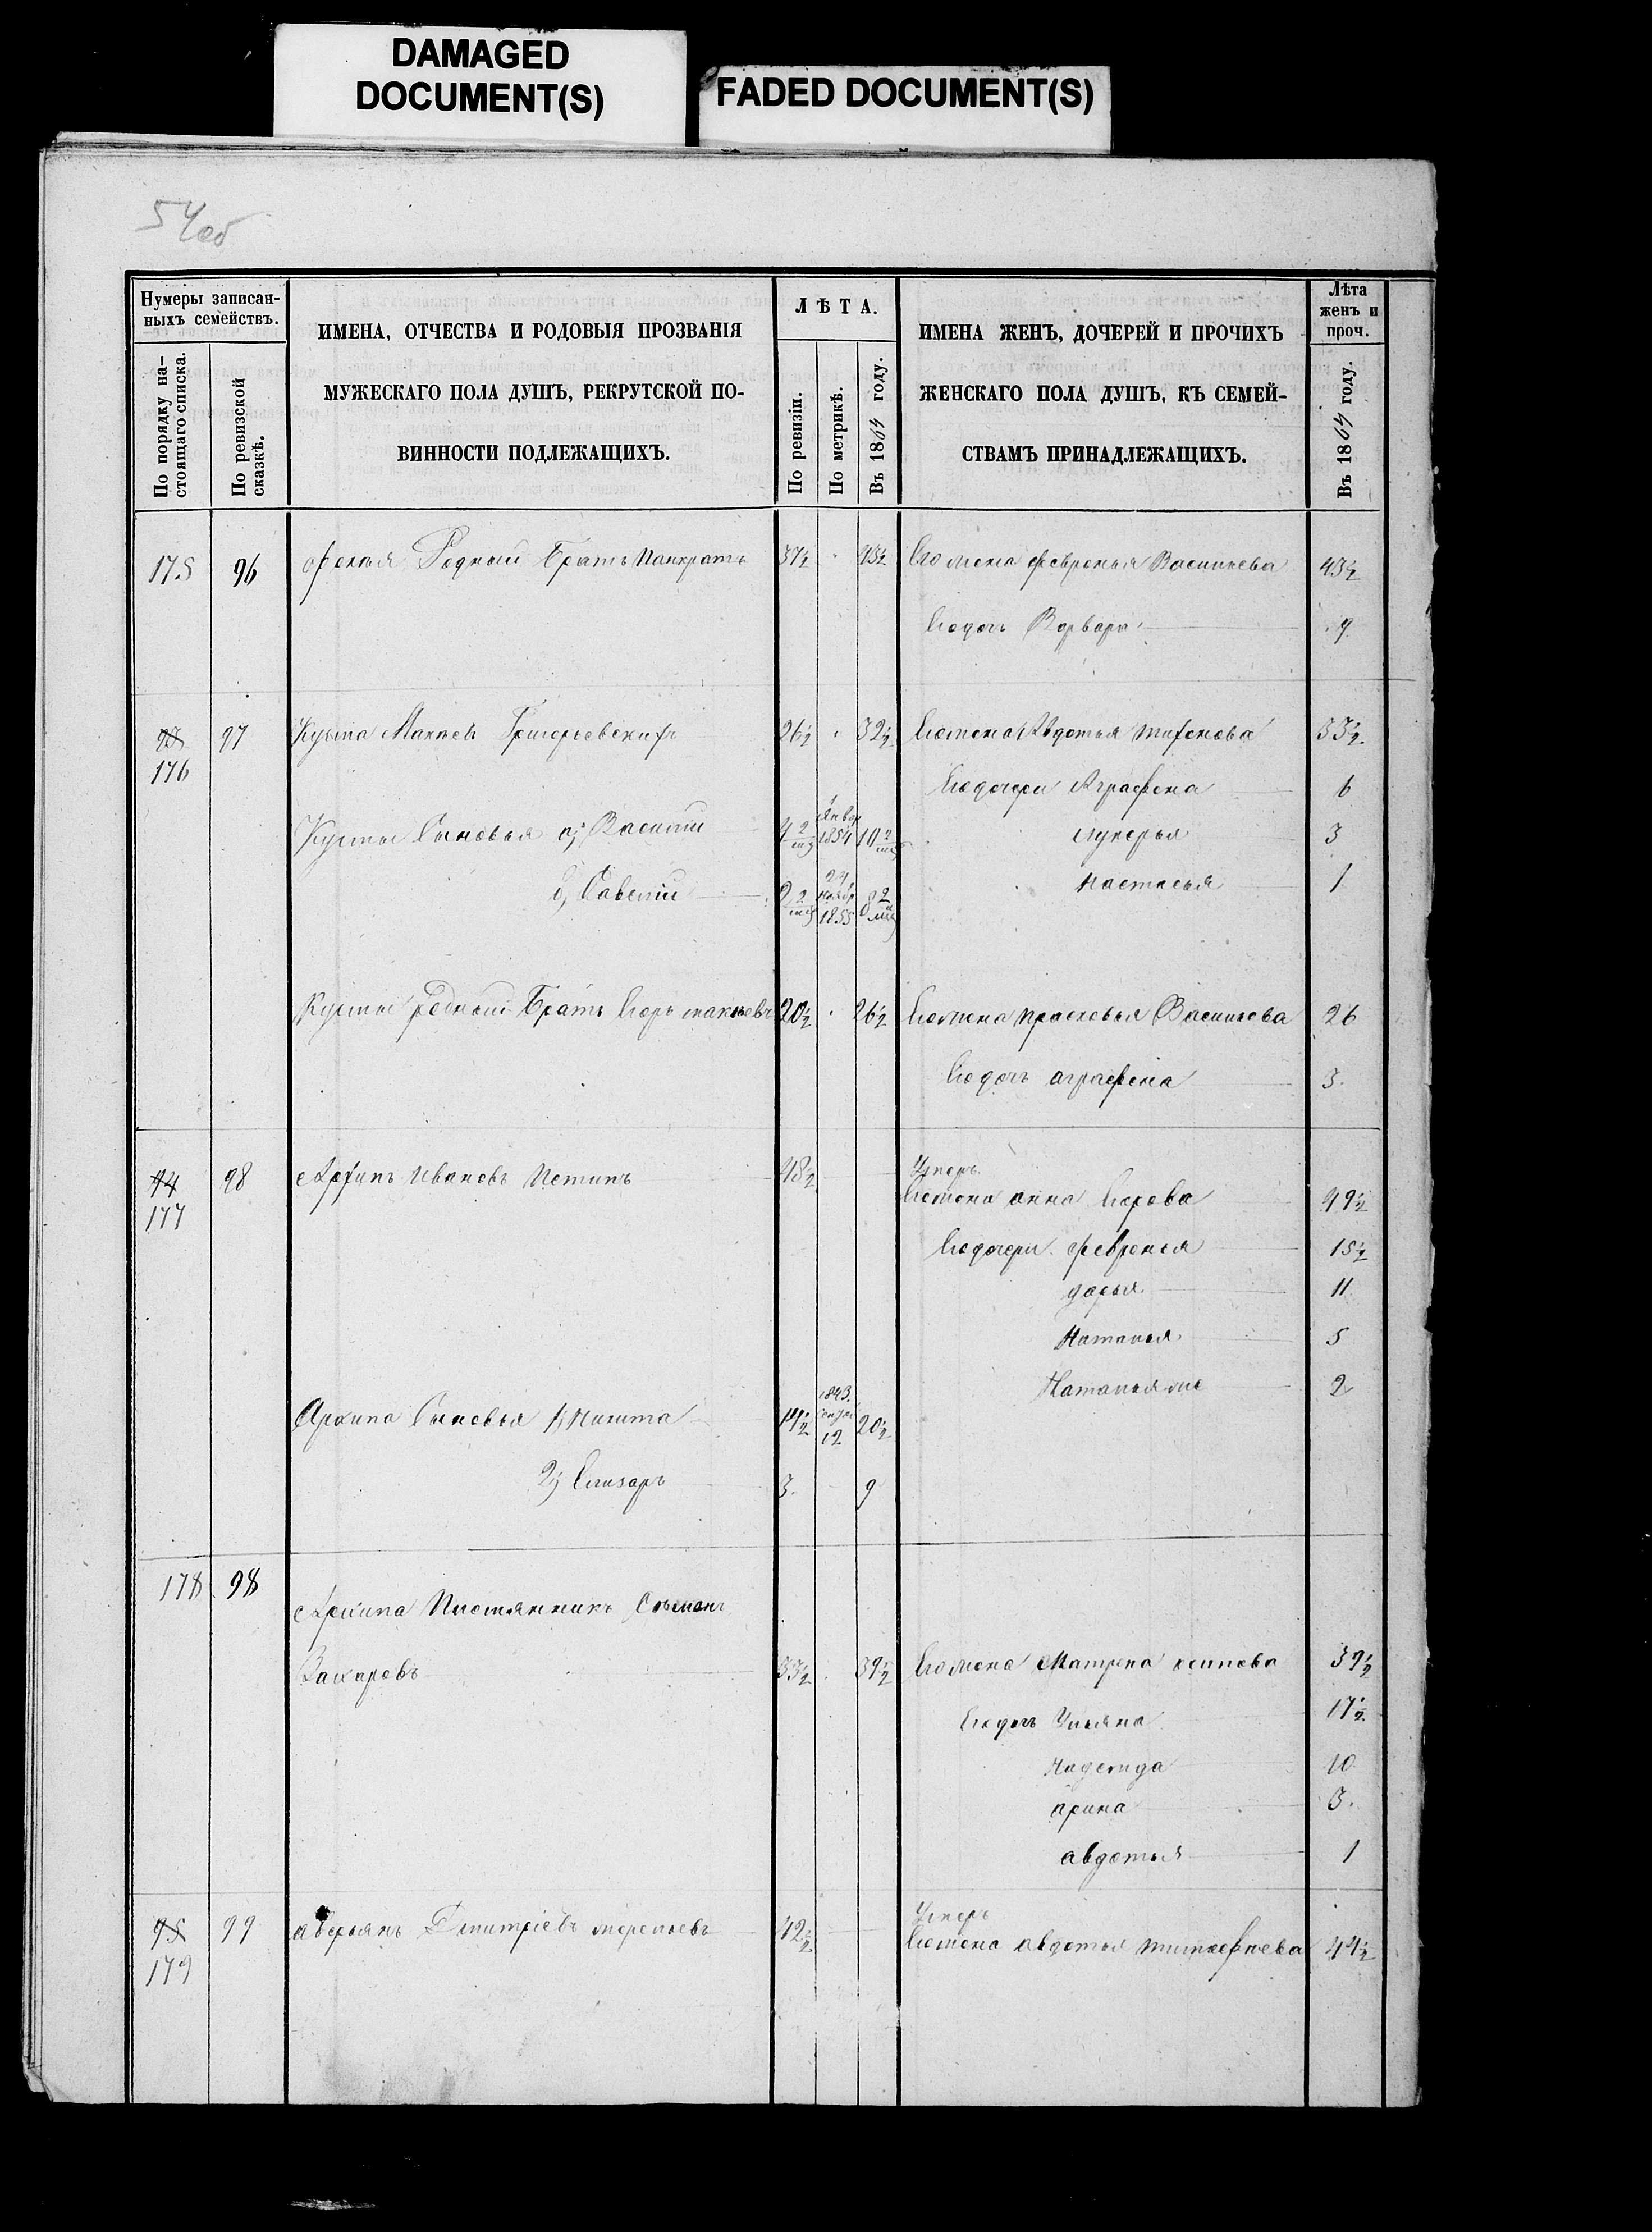 DAMAGED
DOCUMENT(S)
FADED DOCUMENT(S)
54 об
Нумеры записан-
ныхъ семействъ.
По порядку на-
стоящаго списка.
По ревизской
сказкѣ.
ИМЕНА, ОТЧЕСТВА И РОДОВЫЯ ПРОЗВАНІЯ
МУЖЕСКАГО ПОЛА ДУШЪ, РЕКРУТСКОЙ ПО-
ВИННОСТИ ПОДЛЕЖАЩИХЪ.
ЛѢТА.
По ревизіи.
По метрикѣ.
Въ 1864 году.
ИМЕНА ЖЕНЪ, ДОЧЕРЕЙ И ПРОЧИХЪ
ЖЕНСКАГО ПОЛА ДУШЪ, КЪ СЕМЕЙ-
СТВАМЪ ПРИНАДЛЕЖАЩИХЪ.
Лѣта
женъ и
проч.
Въ 1864 году.
175 96 Родный Братъ Панкратъ 37½ 43½ Его жена Февронья Васильева 43½
Его дочь Варвара 9
97 Кузма Григорьевскихъ 26½ 32½ Его жена Авдотья 33½
176
Его дочери Аграфена 6
Кузмы Сыновья а, Василий 4 2 Янвр 1854 10 2 лукерья 3
б, Савелий 2 2 24 Ноябр 1855 8 2 настасья 1
Кузмы родной Братъ Егоръ 20½ 26½ Его жена прасковья Васильева 26
Его дочь аграфена 3
98 Архипъ Ивановъ 48½ Умеръ
177 Его жена анна Егорова 49½
Его дочери Февронья 15½
дарья 11
Наталья 5
Наталья же 2
Архипа Сыновья 1, Никита 14½ 1843 12 20½
2, Елизаръ 3 9
178 98 Архипа Племянникъ
Захаровъ 33½ 39½ Его жена Матрена осипова 39½
Его дочь Ульяна 17½
Надежда 10
арина 3
авдотья 1
99 аверьянъ Дмитріевъ 42½ Умеръ
179 Его жена авдотья тимофеева 44½